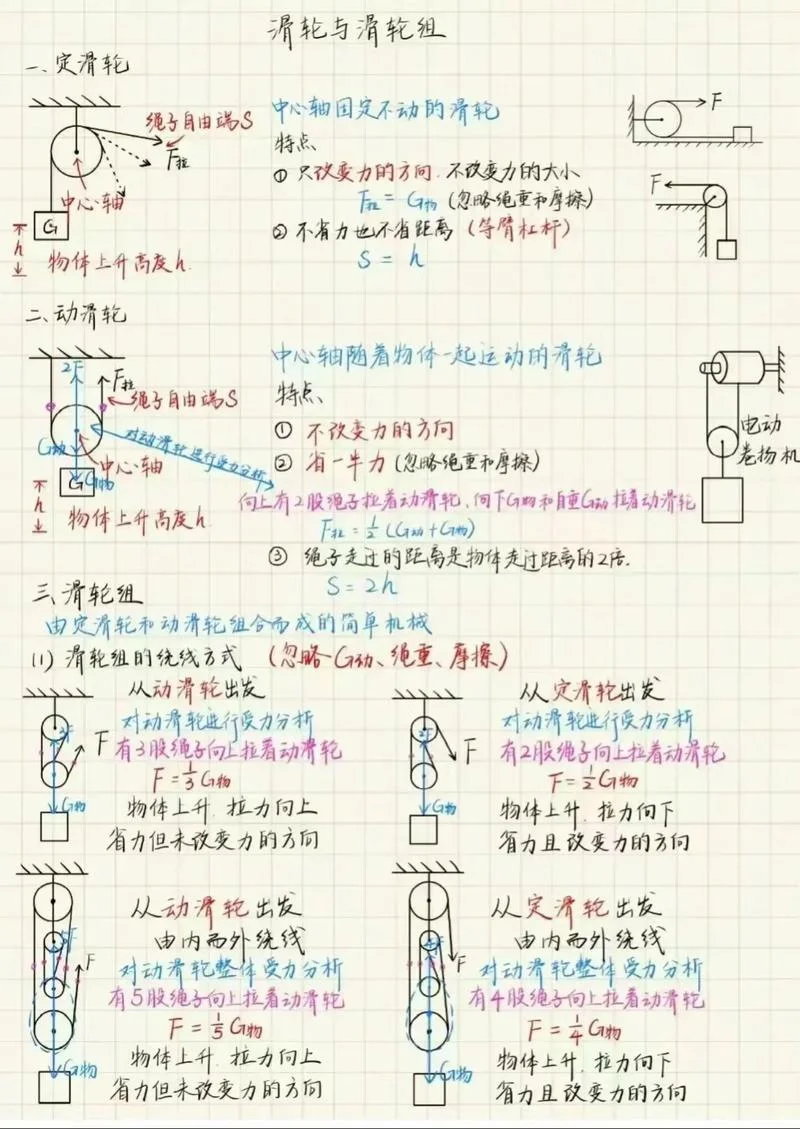 滑轮与滑轮组
一、定滑轮
绳子自由端S
F拉
中心轴
G
h
物体上升高度h.
中心轴固定不动的滑轮
特点
① 只改变力的方向.不改变力的大小
F拉=G物(忽略绳重和摩擦)
② 不省力也不省距离(等臂杠杆)
S=h
F
F
二、动滑轮
2F
F拉
绳子自由端S
G动
对动滑轮进行受力分析
中心轴
G
G物
h
物体上升高度h.
中心轴随着物体一起运动的滑轮
特点
① 不改变力的方向
② 省一半力(忽略绳重和摩擦)
向上有2股绳子拉着动滑轮、向下G物和自重G动拉着动滑轮
F拉=1/2(G动+G物)
③ 绳子走过的距离是物体走过距离的2倍.
S=2h
电动
卷扬机
三、滑轮组
由定滑轮和动滑轮组合而成的简单机械
(1) 滑轮组的绕线方式 (忽略G动、绳重、摩擦)
3F
F
G物
从动滑轮出发
对动滑轮进行受力分析
有3股绳子向上拉着动滑轮
F=1/3G物
物体上升.拉力向上
省力但未改变力的方向
2F
F
G物
从定滑轮出发
对动滑轮进行受力分析
有2股绳子向上拉着动滑轮
F=1/2G物
物体上升.拉力向下
省力且改变力的方向
5F
F
G物
从动滑轮出发
由内而外绕线
对动滑轮整体受力分析
有5股绳子向上拉着动滑轮
F=1/5G物
物体上升.拉力向上
省力但未改变力的方向
4F
F
G物
从定滑轮出发
由内而外绕线
对动滑轮整体受力分析
有4股绳子向上拉着动滑轮
F=1/4G物
物体上升.拉力向下
省力且改变力的方向